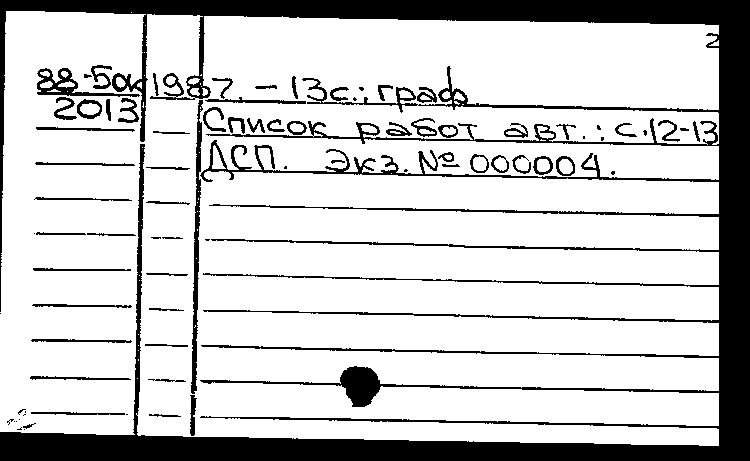 2
88-5ак 1987. – 13с.; граф
2013
Список работ авт.: с.12-13
ДСП. Экз. № 000004.